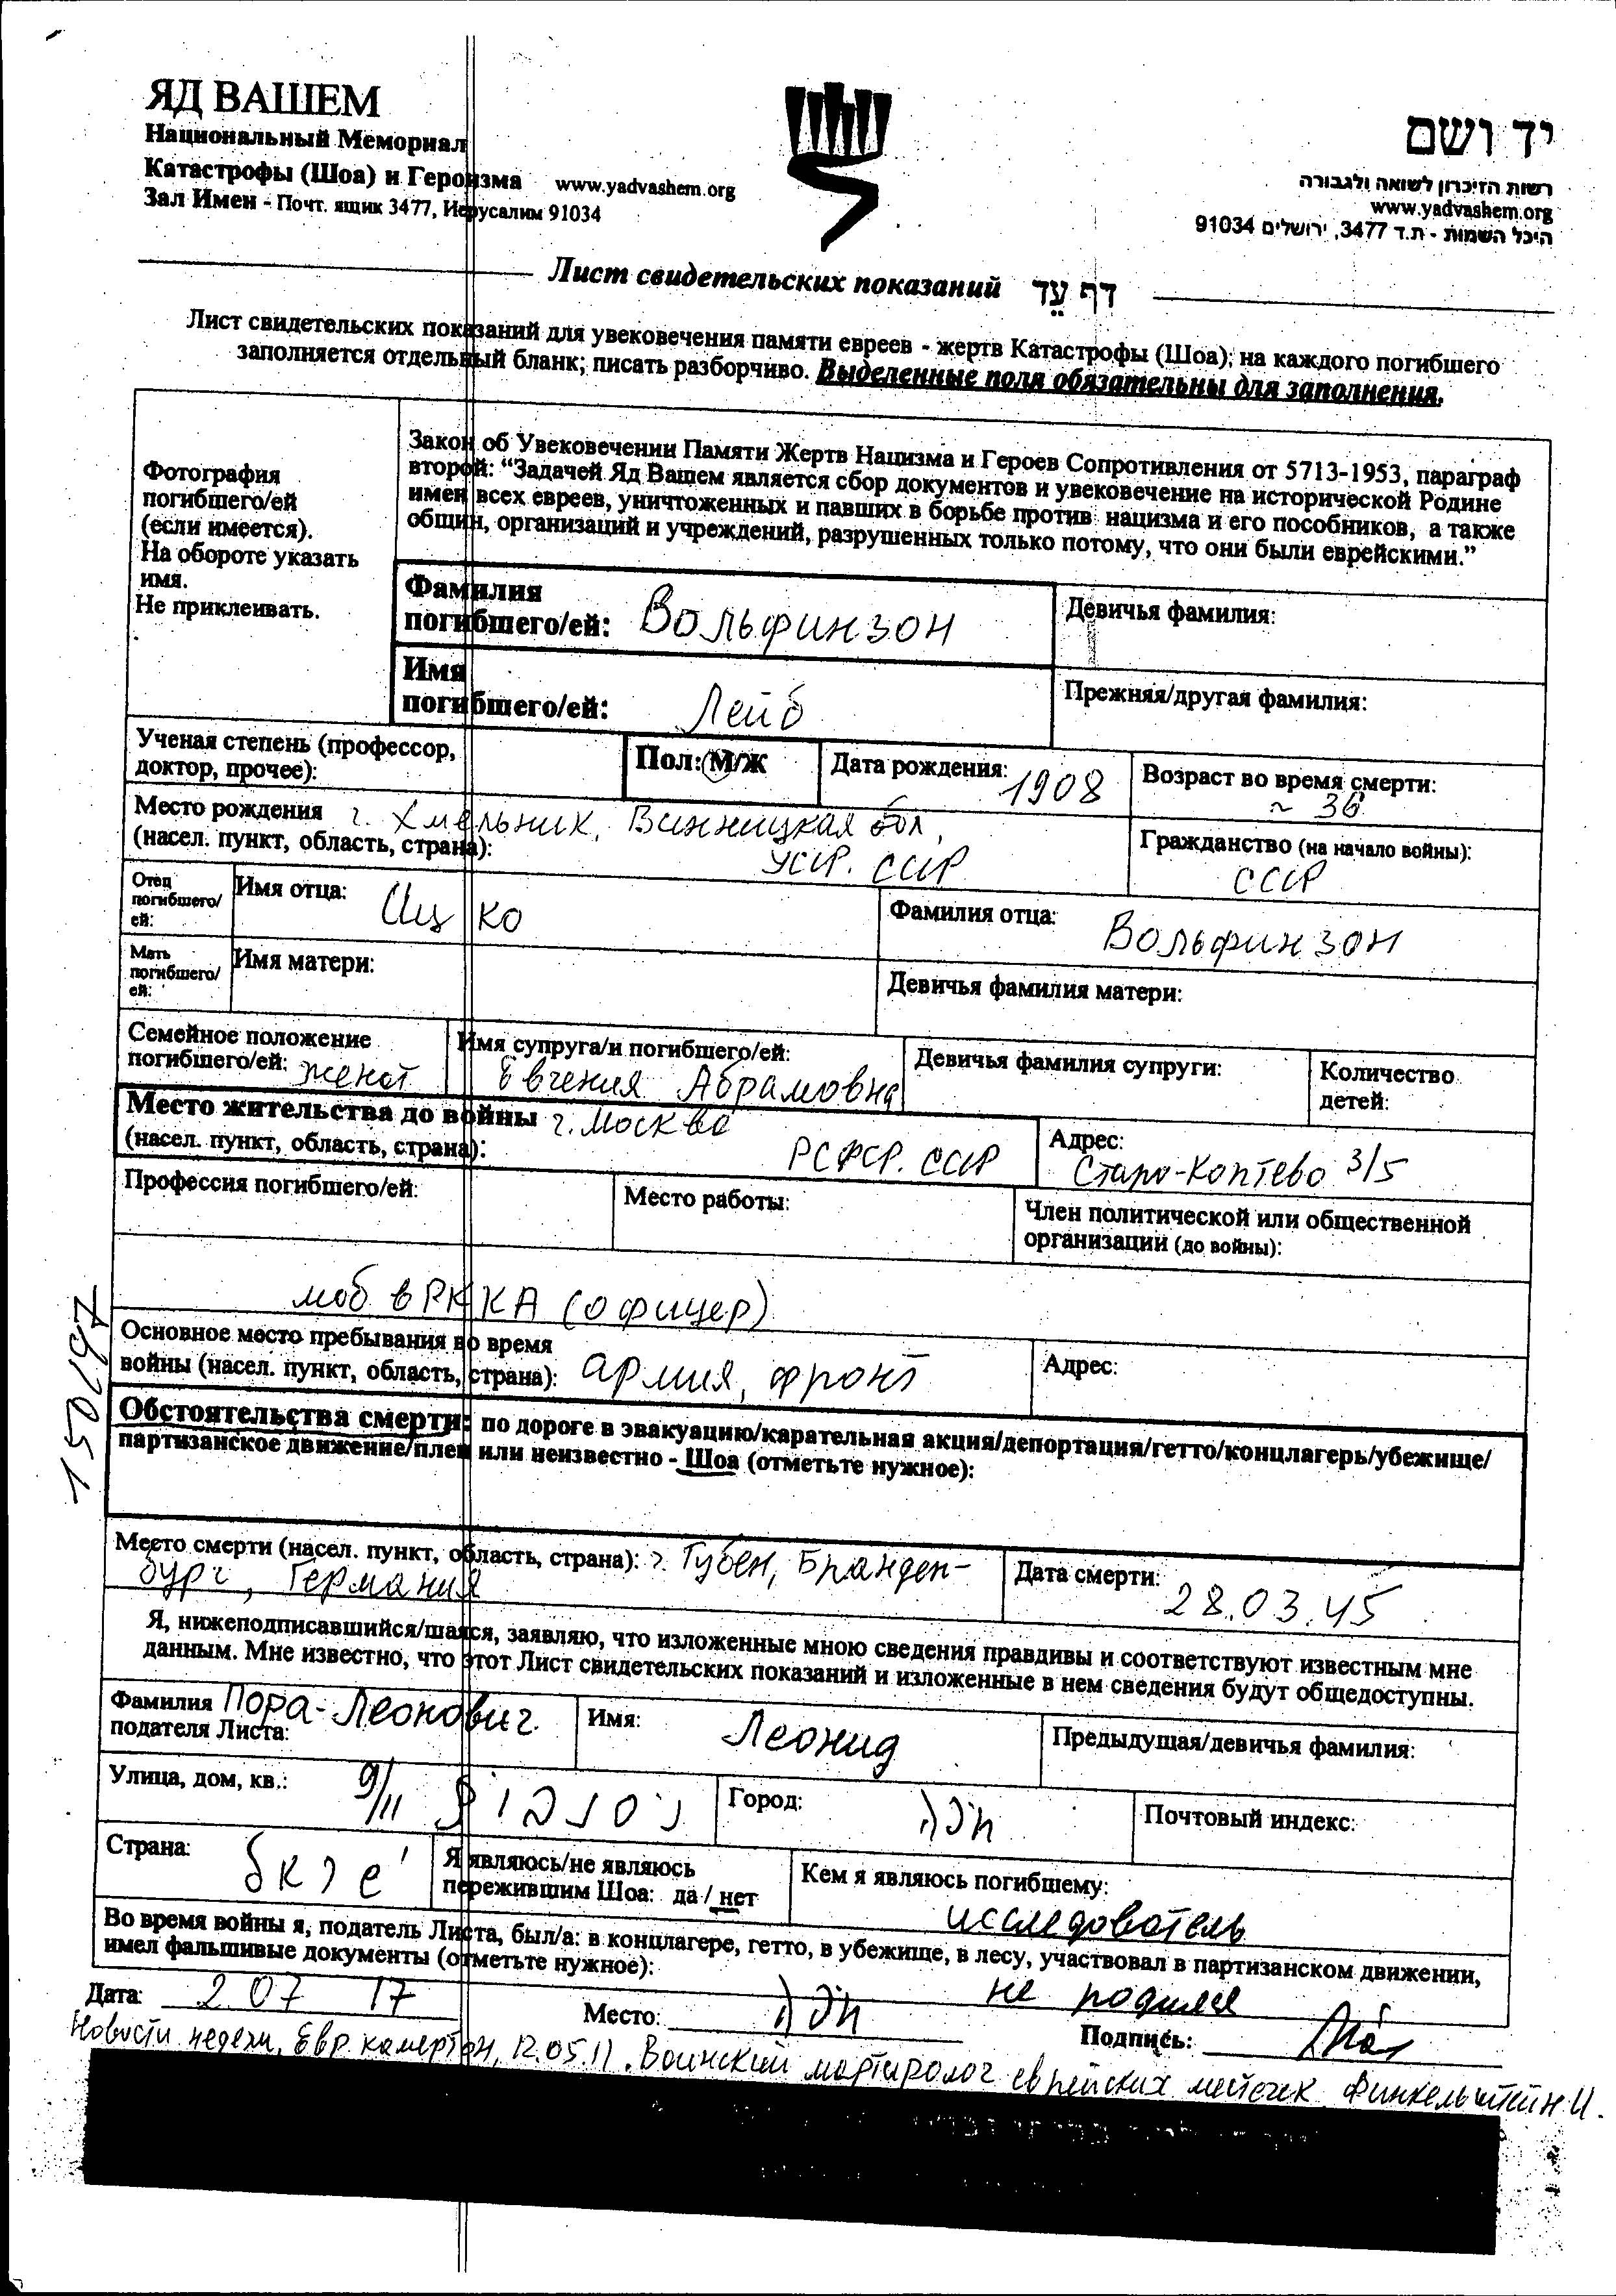 ЯД ВАШЕМ
Национальный Мемориал
Катастрофы (Шоа) и Героизма www.yadvashem.org
Зал Имен - Почт. ящик 3477, Иерусалим 91034
יד ושם
רשות הזיכרון לשואה ולגבורה
www.yadvashem.org
היכל השמות - ת.ד 3477, ירושלים 91034
Лист свидетельских показаний דף עֵד
Лист свидетельских показаний для увековечения памяти евреев - жертв Катастрофы (Шоа); на каждого погибшего
заполняется отдельный бланк; писать разборчиво. Выделенные поля обязательны для заполнения.
Фотография
погибшего/ей
(если имеется).
На обороте указать
имя.
Не приклеивать.
Закон об Увековечении Памяти Жертв Нацизма и Героев Сопротивления от 5713-1953, параграф
второй: “Задачей Яд Вашем является сбор документов и увековечение на исторической Родине
имен всех евреев, уничтоженных и павших в борьбе против нацизма и его пособников, а также
общин, организаций и учреждений, разрушенных только потому, что они были еврейскими.”
Фамилия
погибшего/ей: Вольфинзон
Девичья фамилия:
Имя
погибшего/ей: Лейб
Прежняя/другая фамилия:
Ученая степень (профессор,
доктор, прочее):
Пол: М/Ж
Дата рождения: 1908
Возраст во время смерти:
~ 36
Место рождения г. Хмельник, Винницкая обл,
(насел. пункт, область, страна): УССР. СССР
Гражданство (на начало войны):
СССР
Отец
погибшего/
ей:
Имя отца: Ицко
Фамилия отца: Вольфинзон
Мать
погибшего/
ей:
Имя матери:
Девичья фамилия матери:
Семейное положение
погибшего/ей: женат
Имя супруга/и погибшего/ей:
Евгения Абрамовна
Девичья фамилия супруги:
Количество
детей:
Место жительства до войны г. Москва
(насел. пункт, область, страна): РСФСР. СССР
Адрес:
Старо-Коптево 3/5
Профессия погибшего/ей:
Место работы:
Член политической или общественной
организации (до войны):
моб в РККА (офицер)
Основное место пребывания во время
войны (насел. пункт, область, страна): армия, фронт
Адрес:
150197
Обстоятельства смерти: по дороге в эвакуацию/карательная акция/депортация/гетто/концлагерь/убежище/
партизанское движение/плен или неизвестно - Шоа (отметьте нужное):
Место смерти (насел. пункт, область, страна): г. Губен, Бранден-
бург, Германия
Дата смерти:
28.03.45
Я, нижеподписавшийся/шаяся, заявляю, что изложенные мною сведения правдивы и соответствуют известным мне
данным. Мне известно, что этот Лист свидетельских показаний и изложенные в нем сведения будут общедоступны.
Фамилия Пора-Леонович
подателя Листа:
Имя: Леонид
Предыдущая/девичья фамилия:
Улица, дом, кв.: 9/11
Город:
Почтовый индекс:
Страна:
Я являюсь/не являюсь
пережившим Шоа: да / нет
Кем я являюсь погибшему:
исследователь
Во время войны я, податель Листа, был/а: в концлагере, гетто, в убежище, в лесу, участвовал в партизанском движении,
имел фальшивые документы (отметьте нужное): не родился
Дата: 2 07 17
Место:
Подпись:
Новости недели, Евр камертон, 12.05.11. Воинский мартиролог еврейских местечек Финкельштейн И.